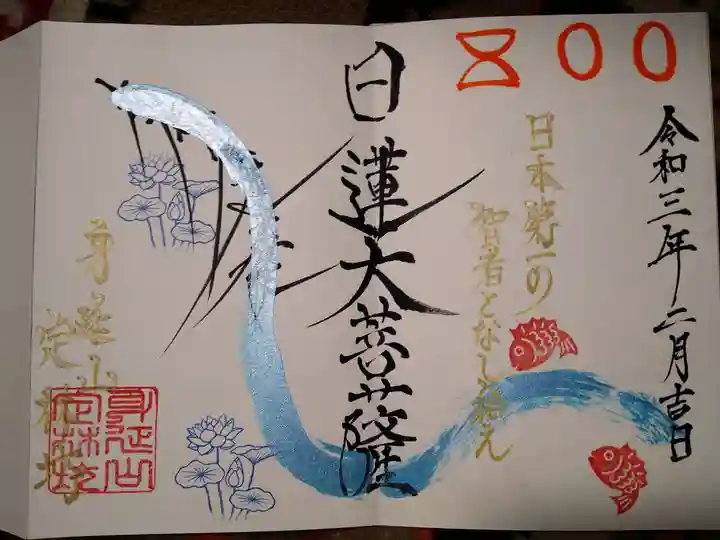 800
令和三年二月吉日
日本第一の
智者となし給え
日蓮大菩薩
身延山
定林坊
身延山
定林坊